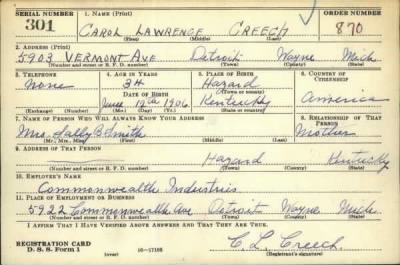 SERIAL NUMBER 1. NAME (Print) ORDER NUMBER
301 CAROL LAWRENCE CREECH 870
(First) (Middle) (Last)
2. ADDRESS (Print)
5903 VERMONT AVE Detroit Wayne Mich
(Number and street or R. F. D. number) (Town) (County) (State)
3. TELEPHONE 4. AGE IN YEARS 5. PLACE OF BIRTH 6. COUNTRY OF CITIZENSHIP
None 34 Hazard
DATE OF BIRTH (Town or county)
June 12th 1906 Kentucky America
(Exchange) (Number) (Mo.) (Day) (Yr.) (State or country)
7. NAME OF PERSON WHO WILL ALWAYS KNOW YOUR ADDRESS 8. RELATIONSHIP OF THAT PERSON
Mrs. Sally B Smith Mother
(Mr., Mrs., Miss) (First) (Middle) (Last)
9. ADDRESS OF THAT PERSON
Hazard Kentucky
(Number and street or R. F. D. number) (Town) (County) (State)
10. EMPLOYER'S NAME
Commonwealth Industries
11. PLACE OF EMPLOYMENT OR BUSINESS
5922 Commonwealth Ave Detroit Wayne Mich
(Number and street or R. F. D. number) (Town) (County) (State)
I AFFIRM THAT I HAVE VERIFIED ABOVE ANSWERS AND THAT THEY ARE TRUE.
REGISTRATION CARD
D. S. S. Form 1 16—17105 C. L. Creech
(over) (Registrant's signature)